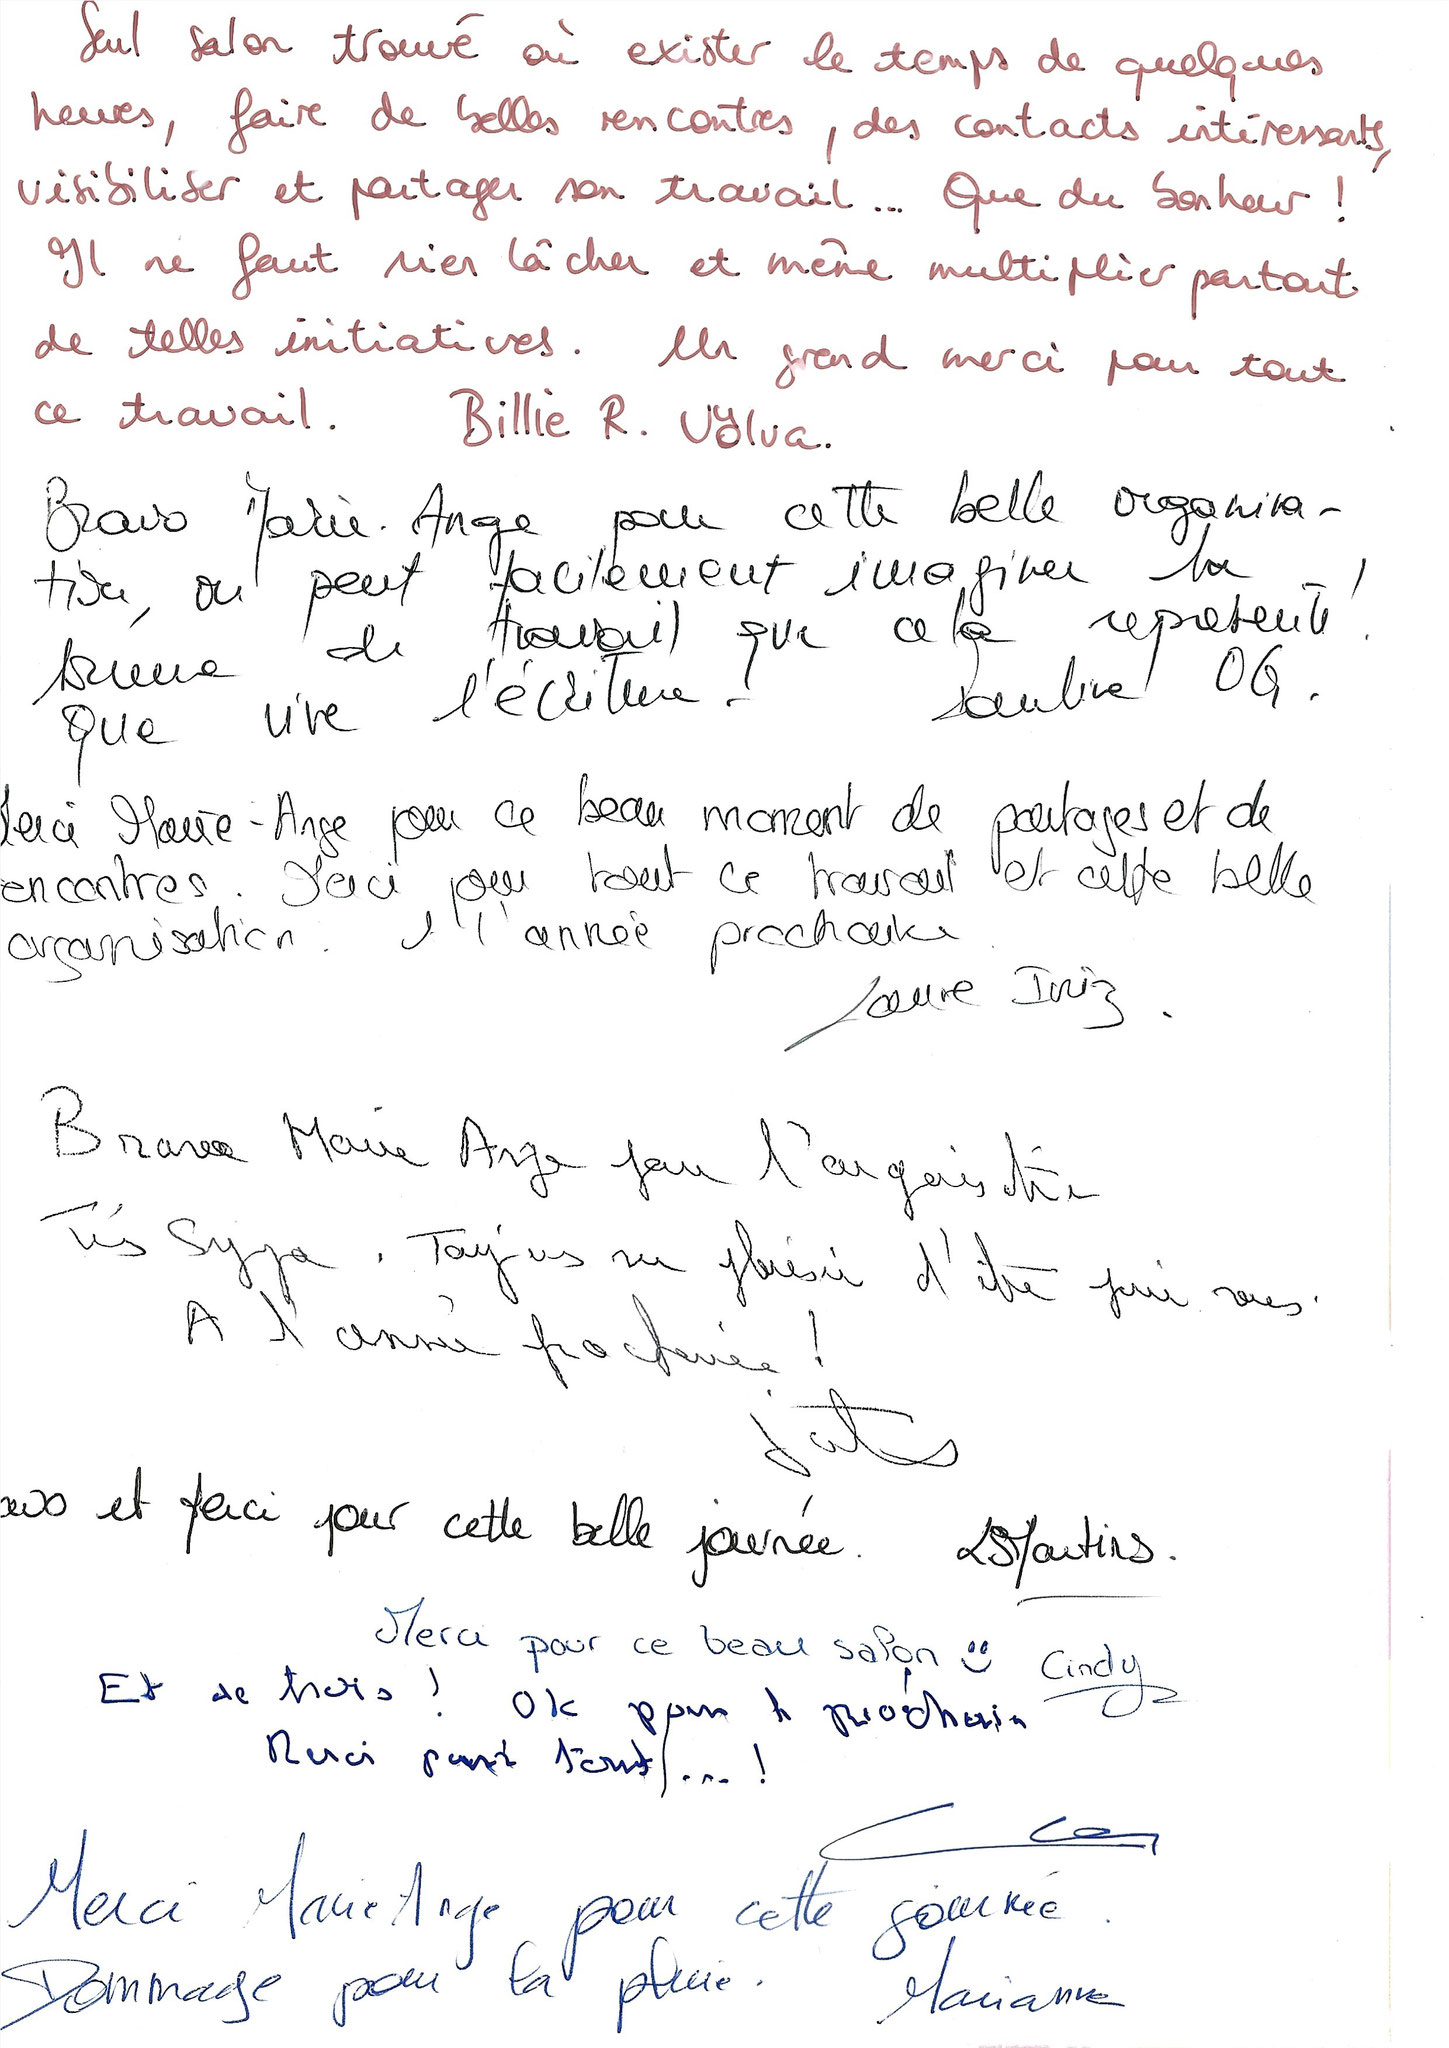 Seul salon trouvé où exister le temps de quelques
heures, faire de belles rencontres, des contacts intéressants,
visibiliser et partager son travail... Que du bonheur !
Il ne faut rien lâcher et même multiplier partout
de telles initiatives. Un grand merci pour tout
ce travail. Billie R. Vylva.
Bravo Marie-Ange pour cette belle organisa-
tion, on peut facilement imaginer la
somme de travail que cela représente !
Que vive l'écriture. OG.
Merci Marie-Ange pour ce beau moment de partages et de
rencontres. Merci pour tout ce travail et cette belle
organisation. A l'année prochaine.
Laure Iniz.
Bravo Marie Ange pour l'organisation
Très Sympa. Toujours un plaisir d'être parmi vous.
A l'année prochaine !
et Merci pour cette belle journée. Martins.
Merci pour ce beau salon Cindy
Et de trois ! OK pour le prochain
Merci pour tout... !
Merci Marie Ange pour cette journée.
Dommage pour la pluie. Marianne